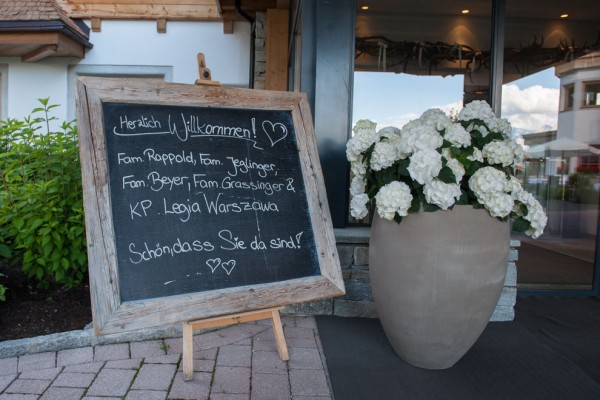 Herzlich Willkommen!
Fam. Rappold, Fam. Jeglinger,
Fam. Beyer, Fam. Grassinger &
KP. Legia Warszawa
Schön, dass Sie da sind!
...